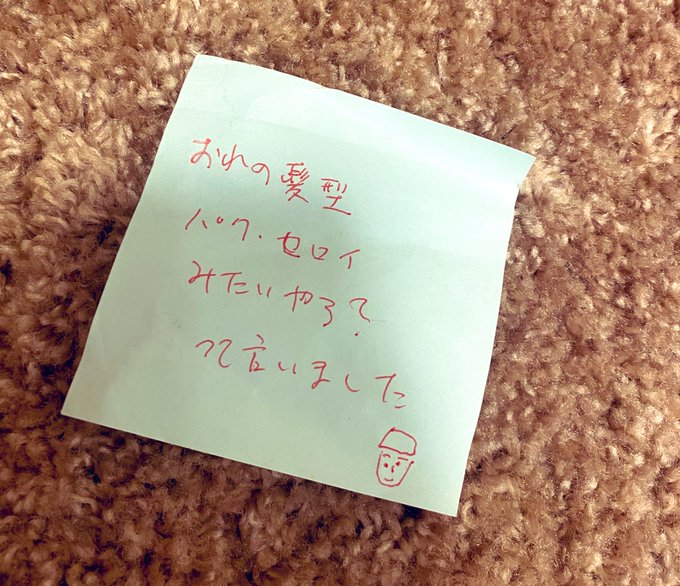 おれの髪型
パク・セロイ
みたいやろ?
って言いました